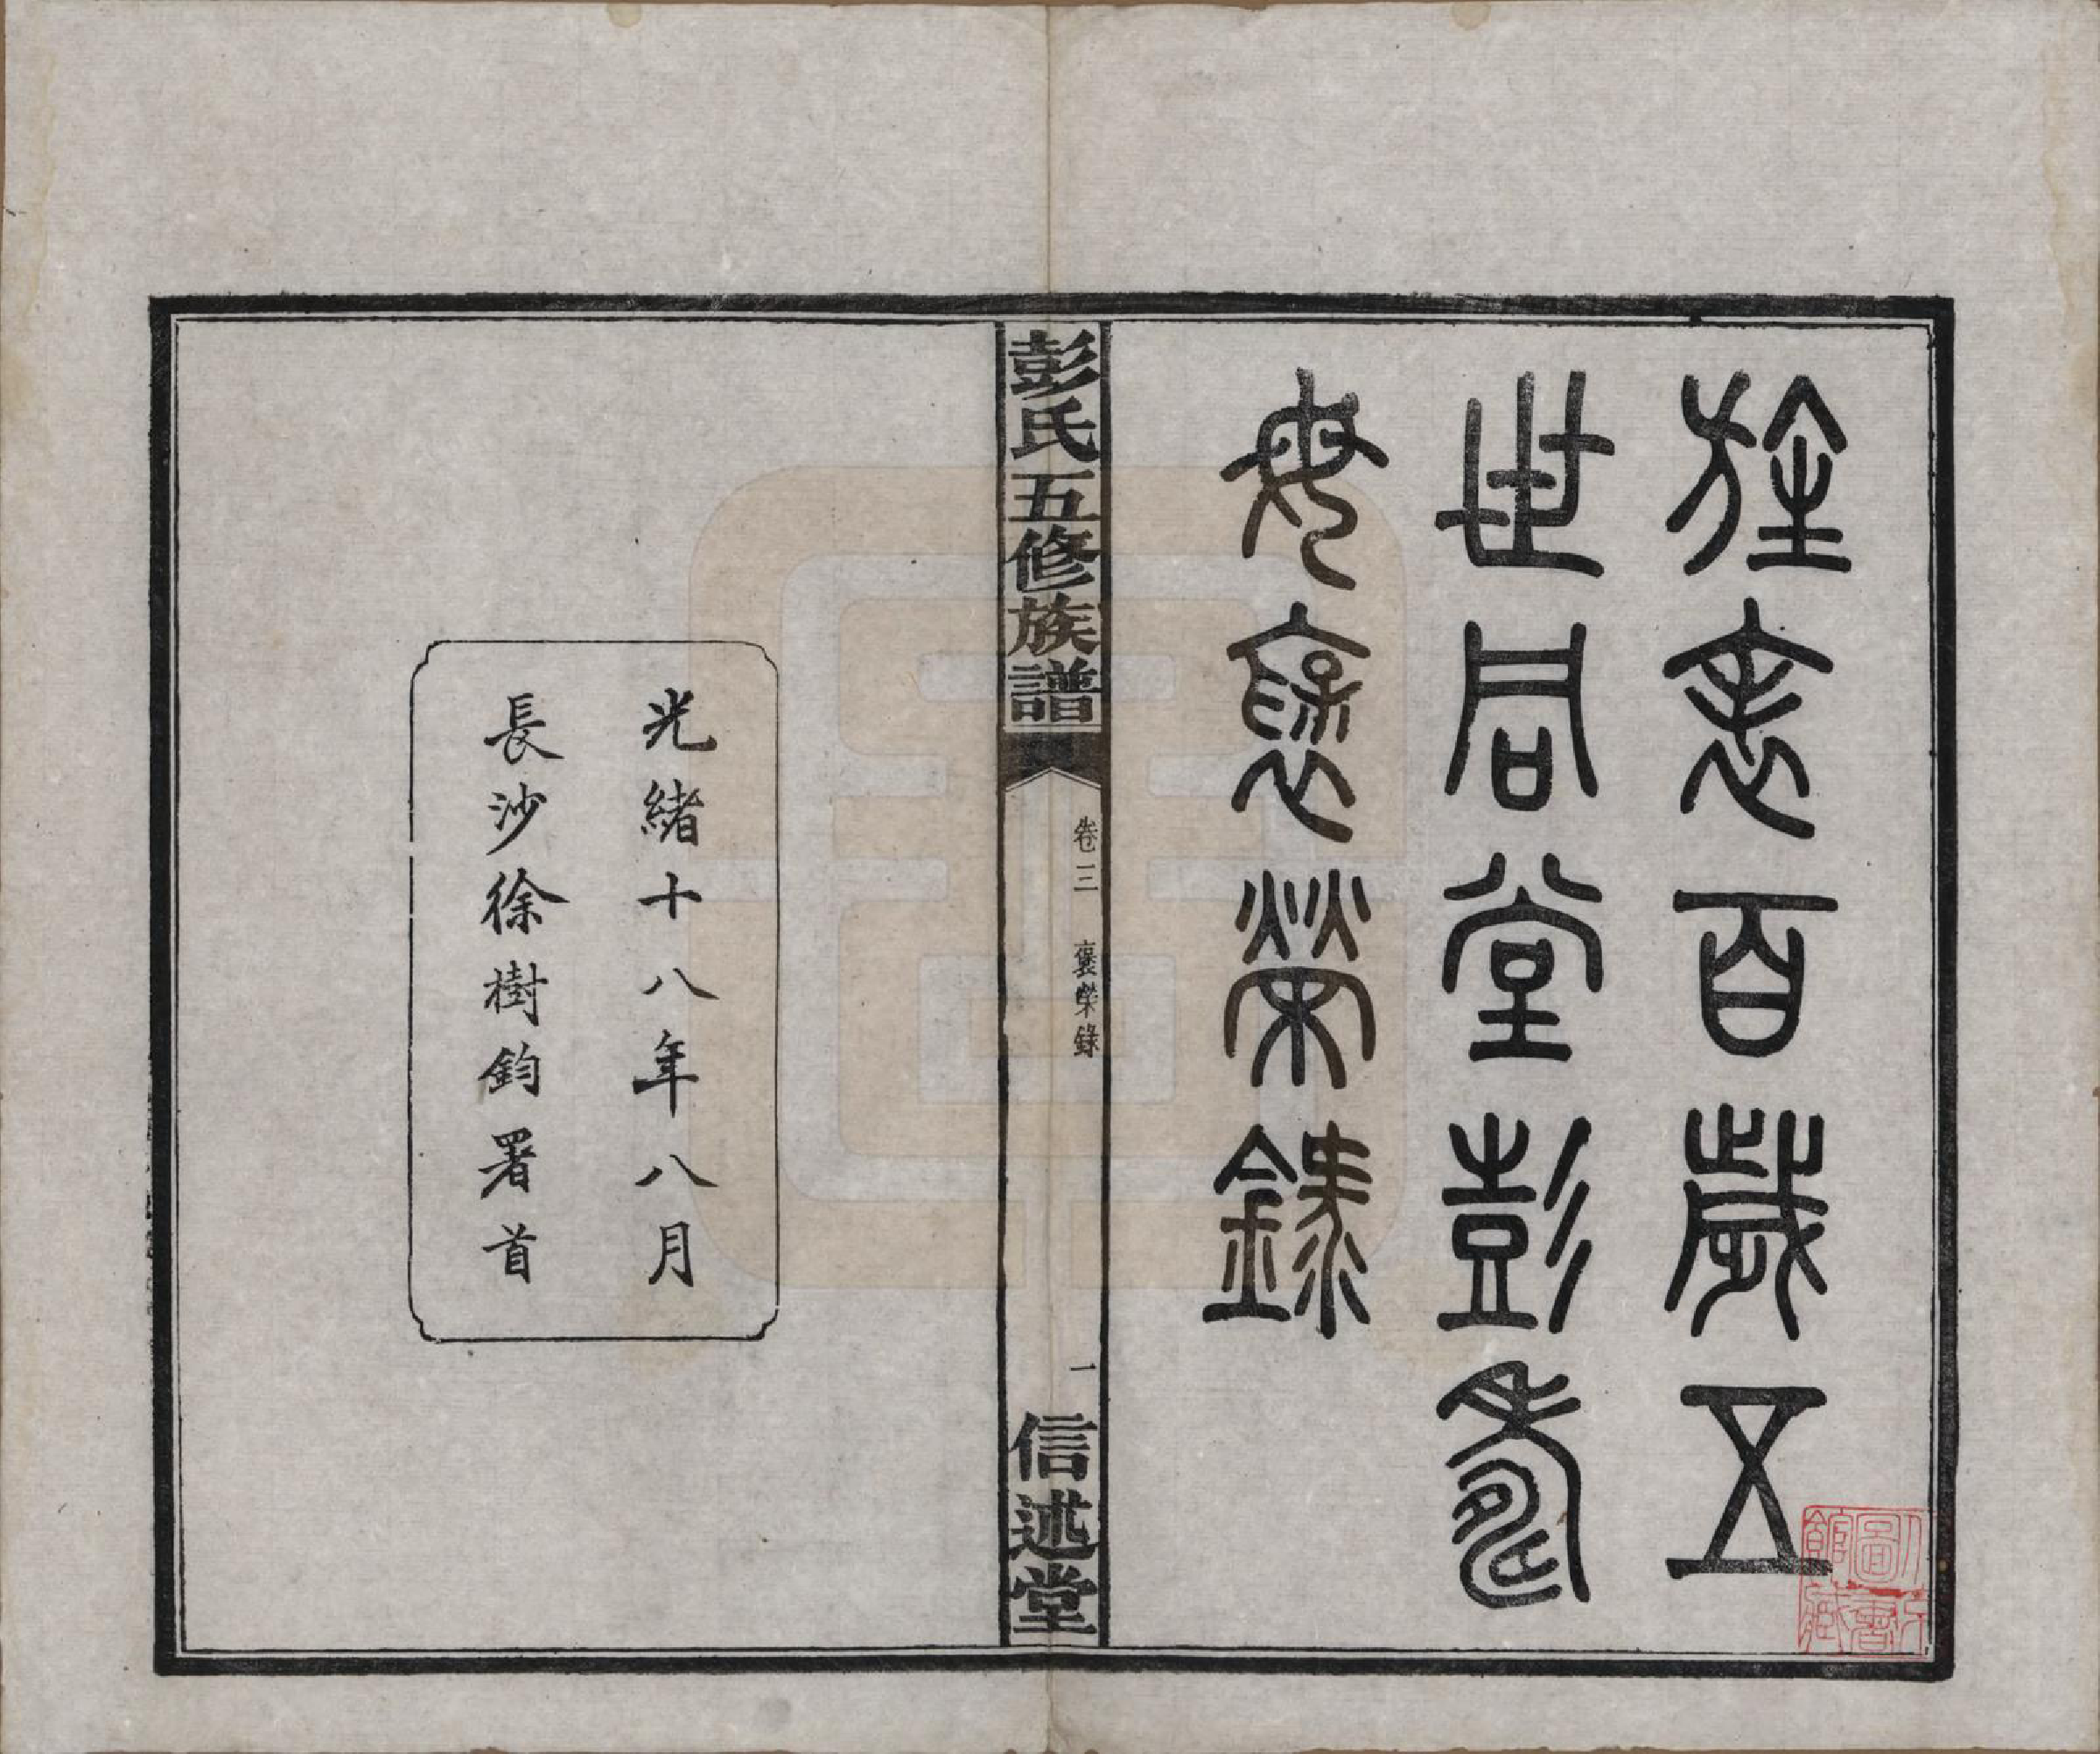 旌表百歲五
世同堂彭壽
母褒榮錄
彭氏五修族譜
卷三
褒榮錄
一
信述堂
光緒十八年八月
長沙徐樹鈞署首
圖書
館藏